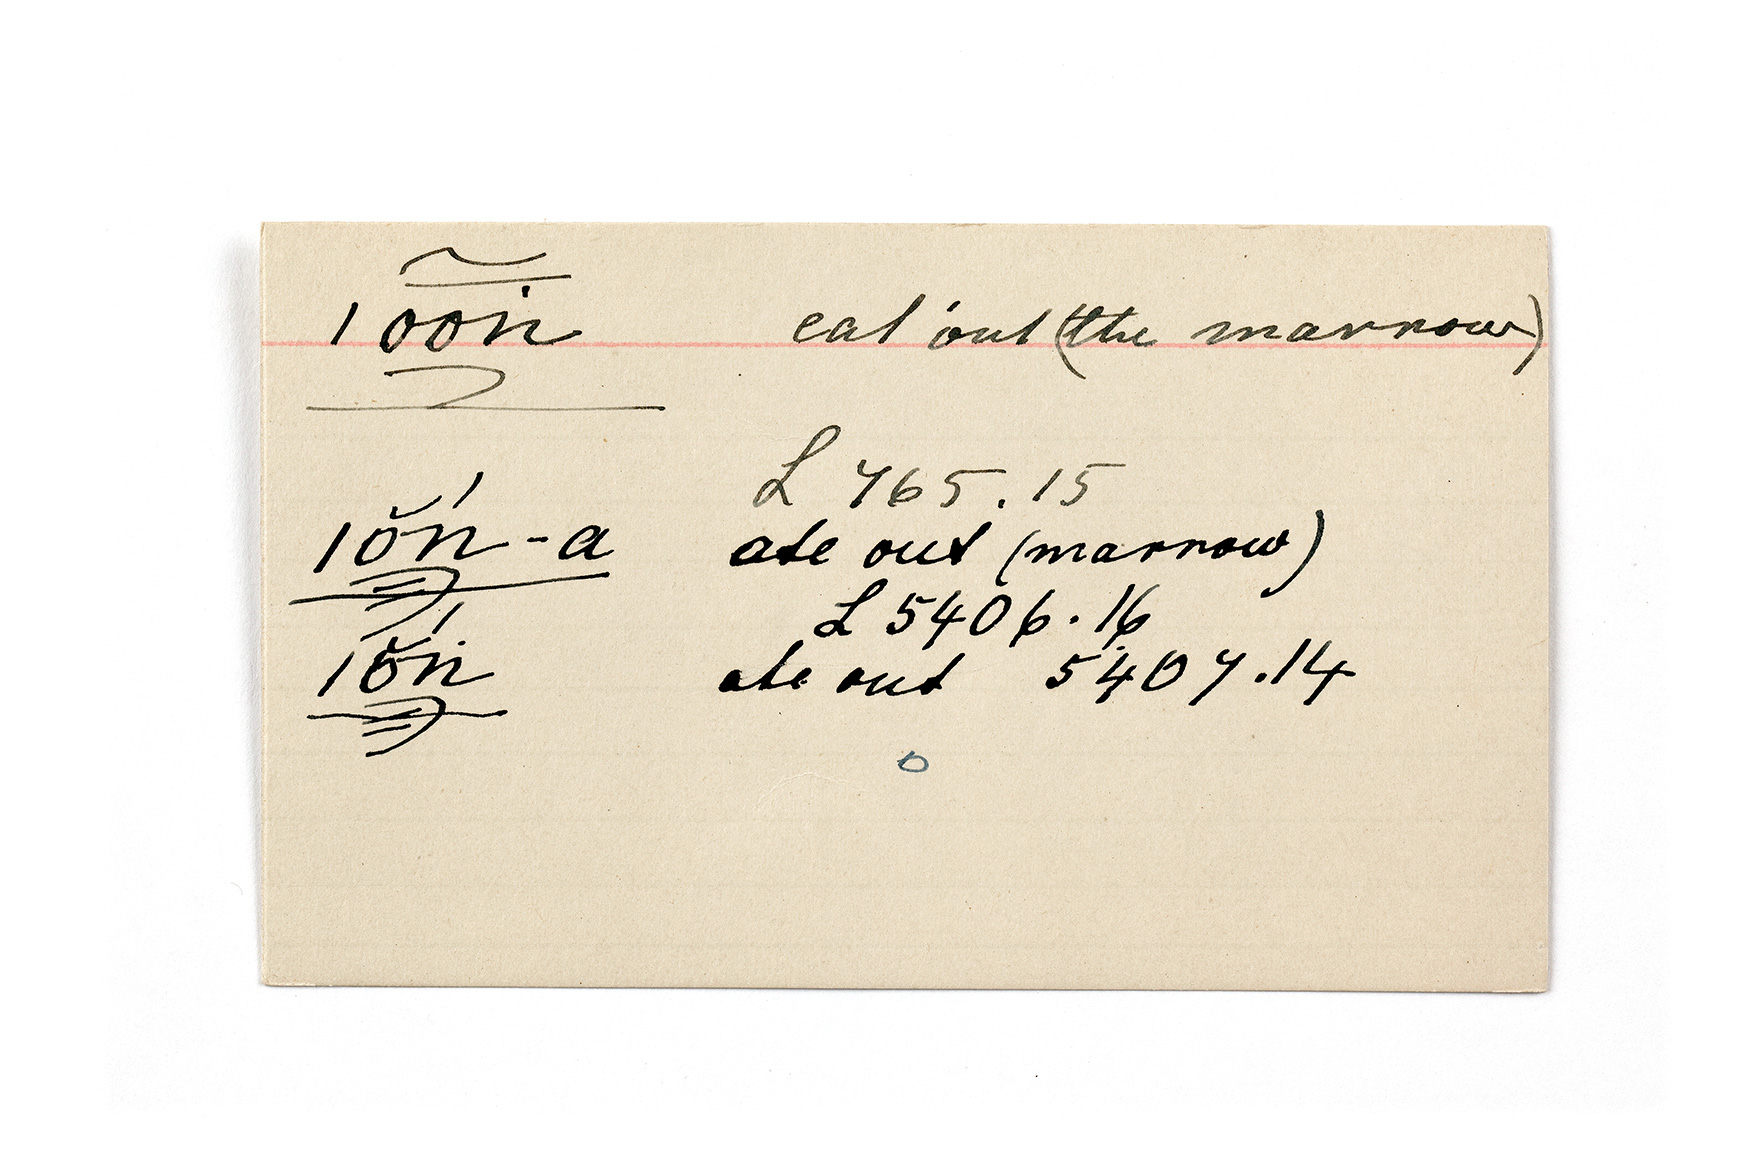 ǀooṅ eat out (the marrow)
L 765.15
ǀŏń-a ate out (marrow)
L 5406.16
ǀŏń ate out 5407.14